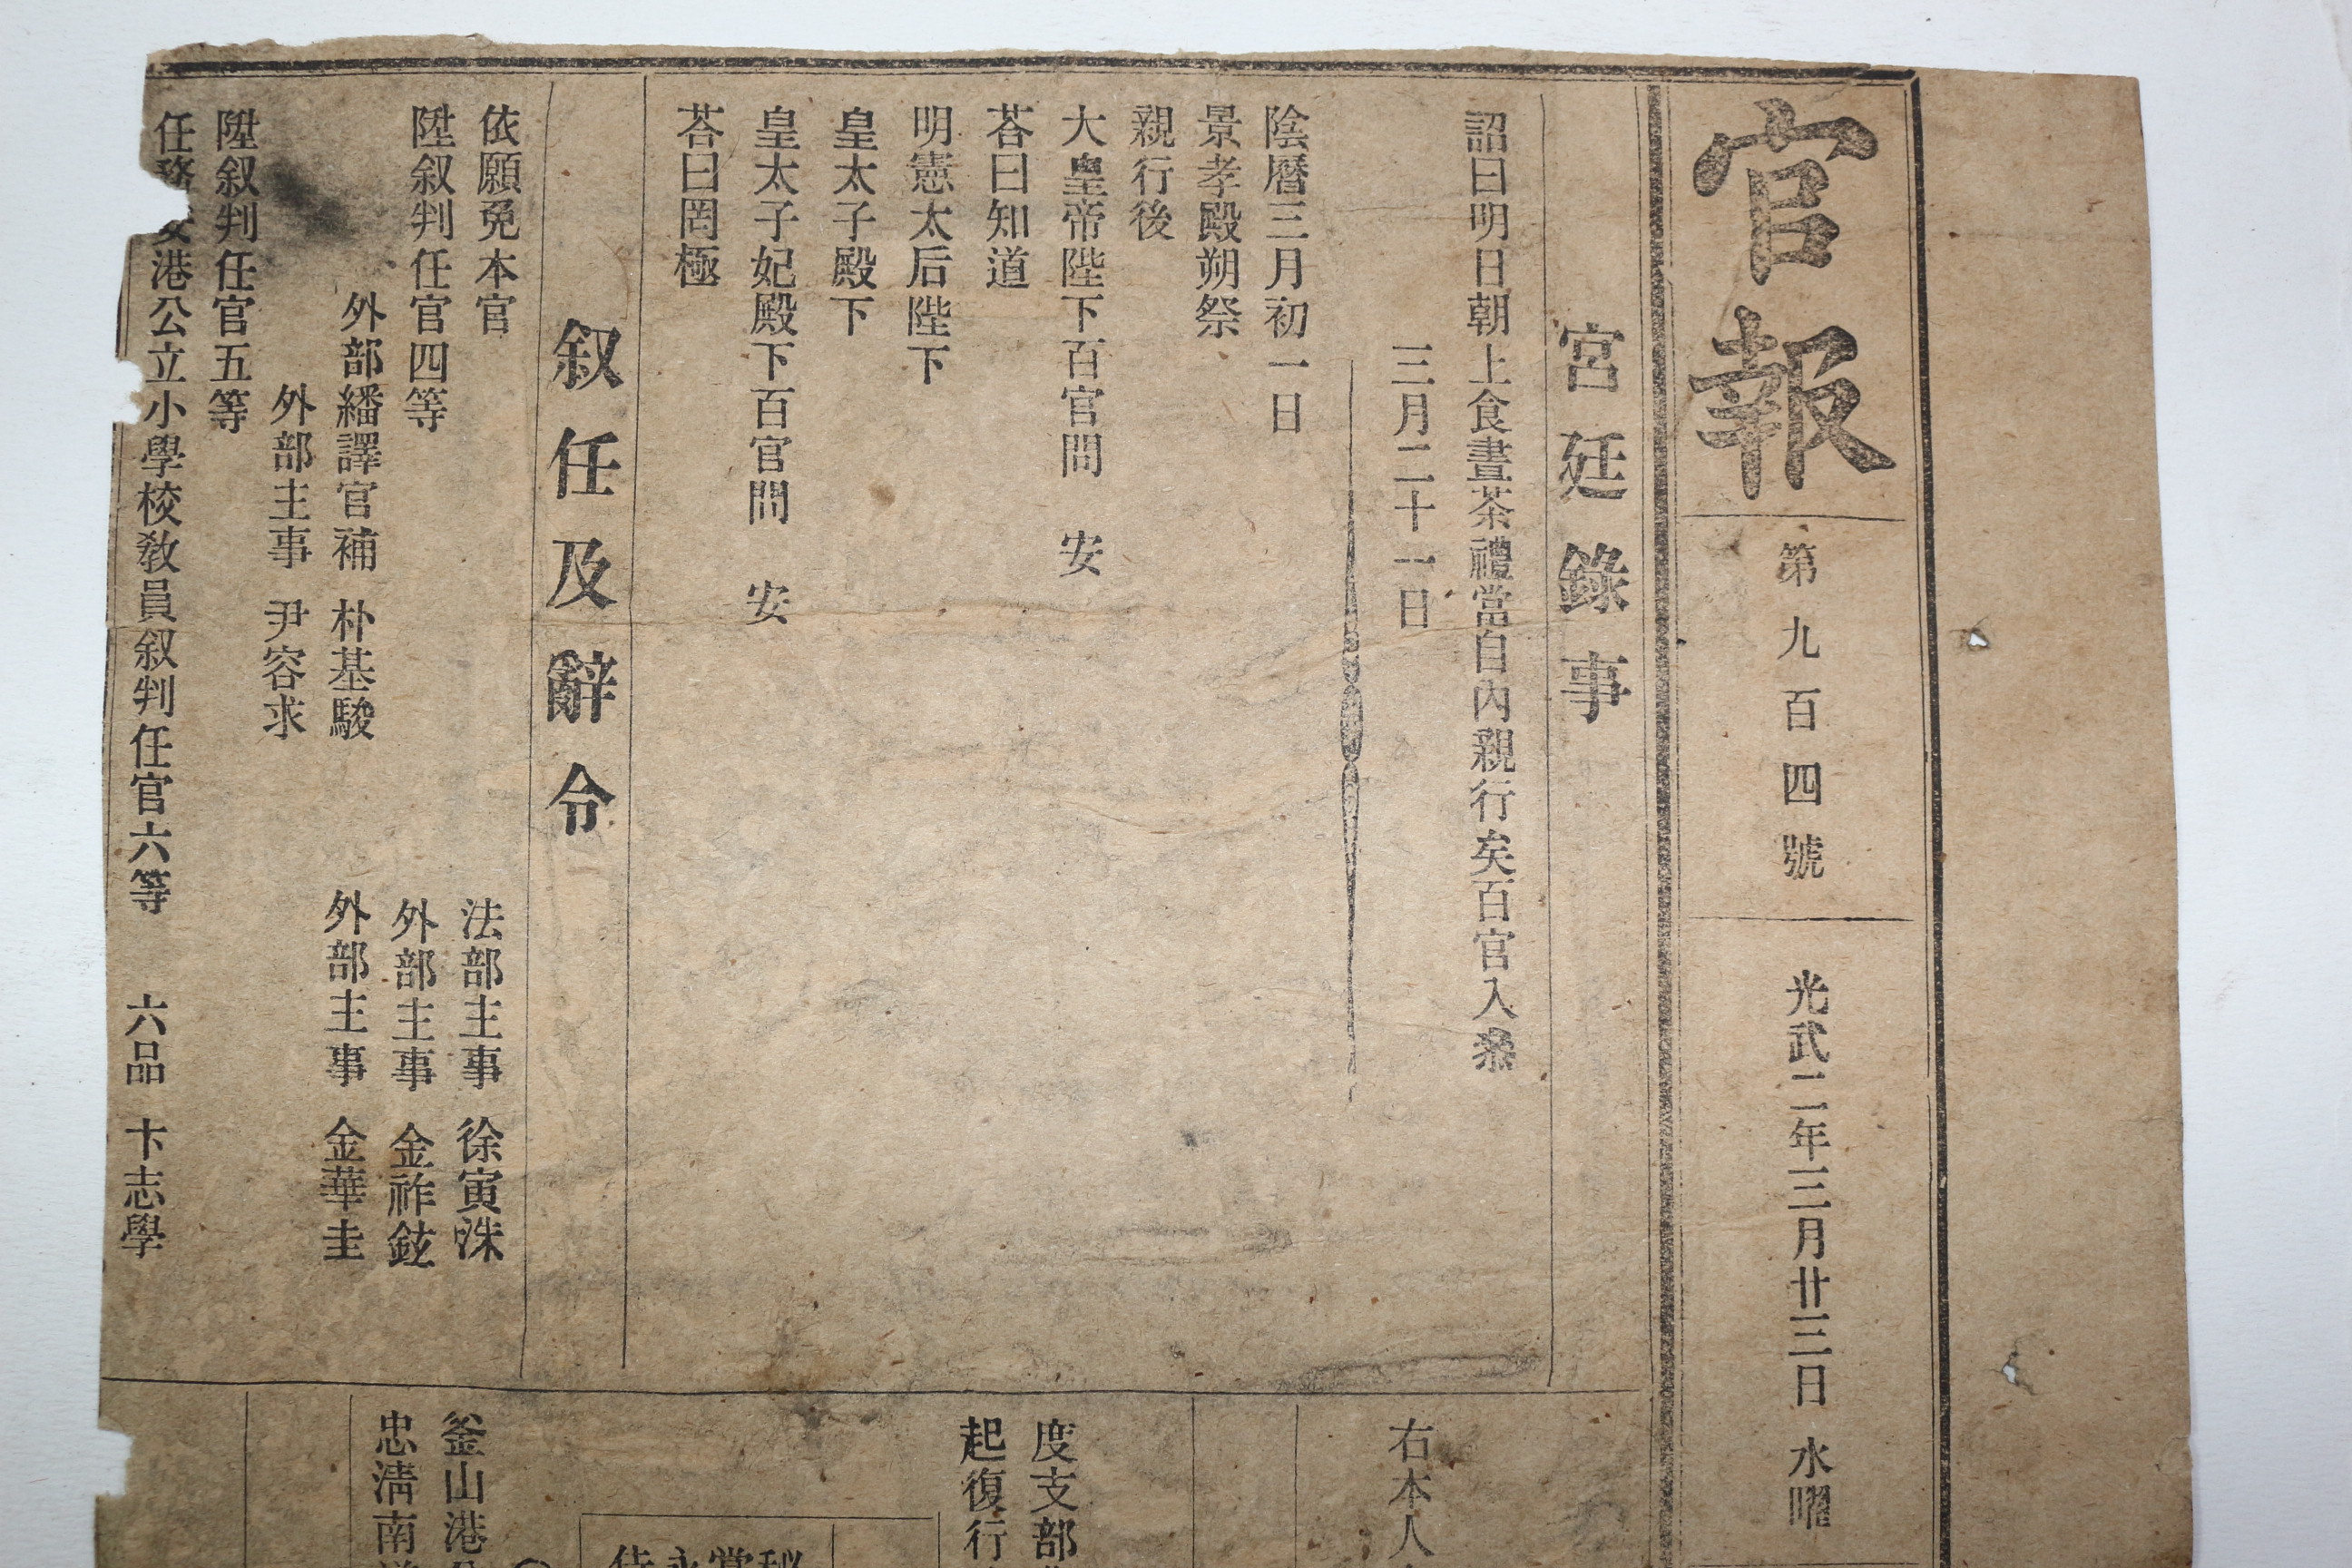 官報
第九百四號
光武二年三月廿三日 水曜
宮廷錄事
詔曰明日朝上食晝茶禮當自內親行矣百官入叅
三月二十一日
陰曆三月初一日
景孝殿朔祭
親行後
大皇帝陛下百官問 安
荅曰知道
明憲太后陛下
皇太子殿下
皇太子妃殿下百官問 安
荅曰罔極
叙任及辭令
依願免本官 法部主事 徐寅洙
陞叙判任官四等 外部主事 金祚鉉
外部繙譯官補 朴基駿 外部主事 金華圭
外部主事 尹容求
陞叙判任官五等
任務安港公立小學校敎員叙判任官六等 六品 卞志學
右本人
度支部
起復行
釜山港
忠淸南道